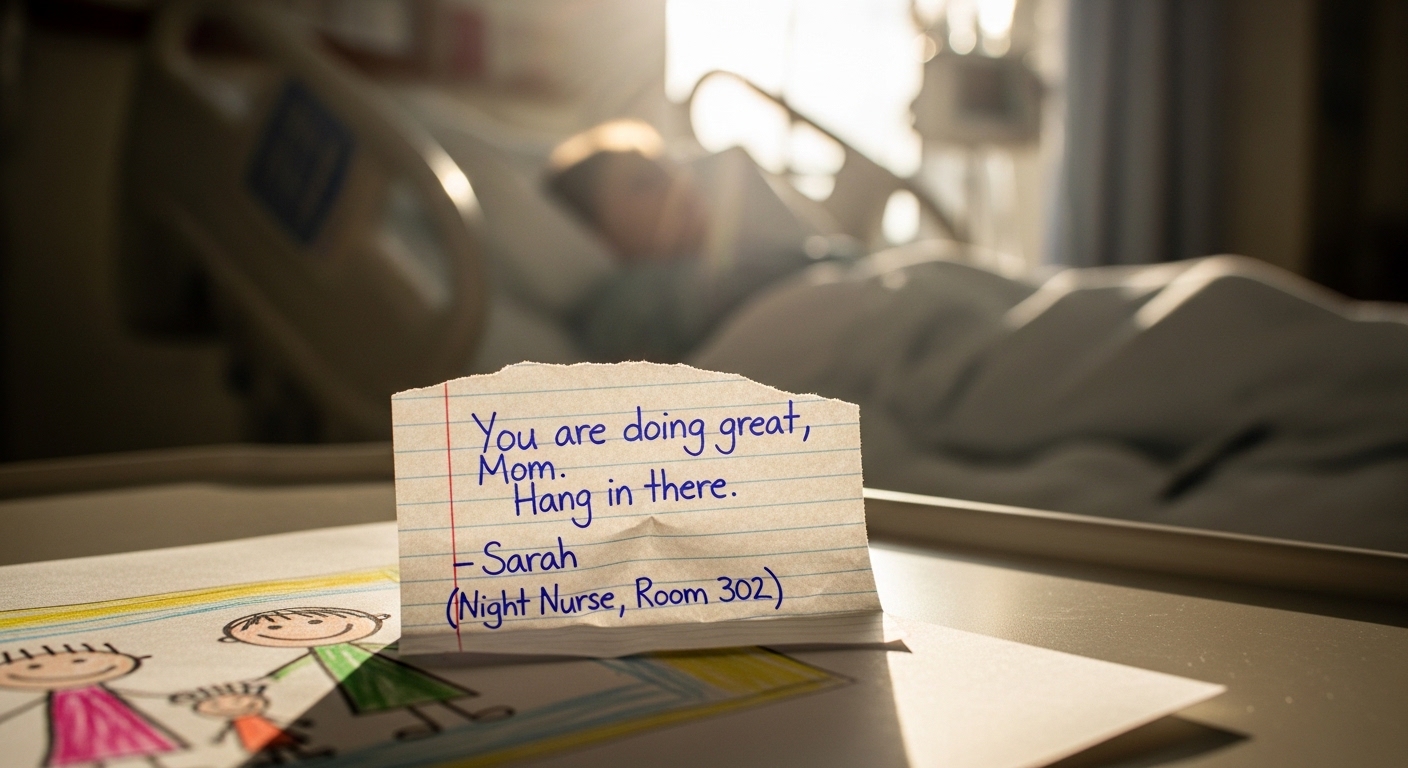 You are doing great,
Mom.
Hang in there.
– Sarah
(Night Nurse, Room 302)